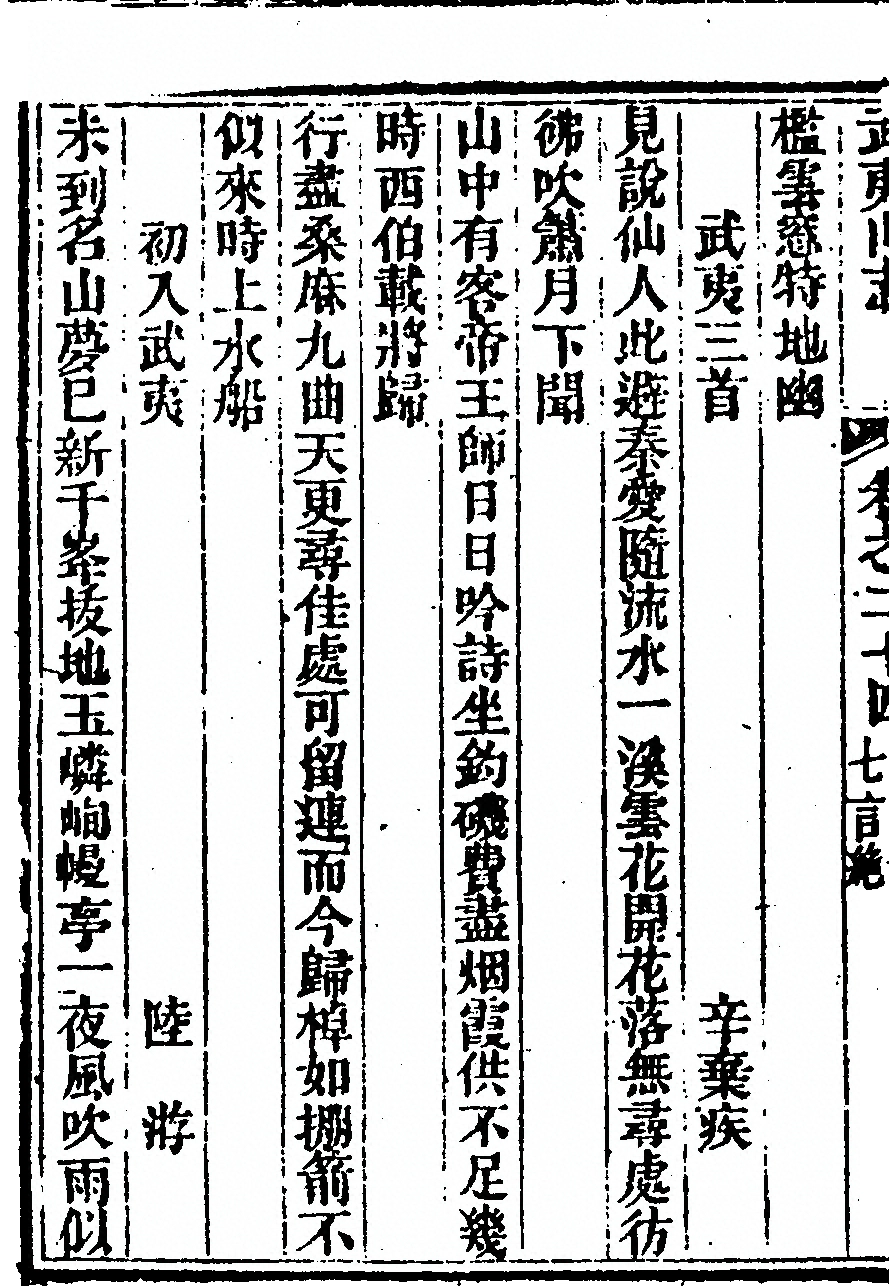 武夷山志 卷之二十四 七言絶
檻雲窓特地幽
武夷三首 辛棄疾
見說仙人此避秦愛隨流水一溪雲花開花落無尋處彷
彿吹簫月下聞
山中有客帝王師日日吟詩坐釣磯費盡烟霞供不足幾
時西伯載將歸
行盡桑麻九曲天更尋佳處可留連而今歸棹如掤箭不
似來時上水船
初入武夷 陸游
未到名山夢已新千峯拔地玉嶙峋幔亭一夜風吹雨似